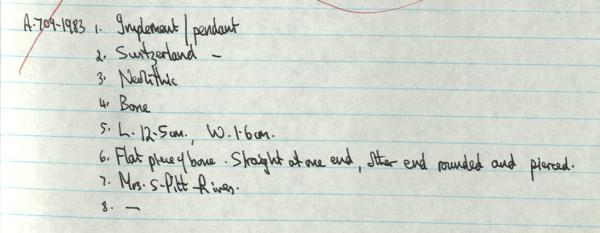 A.709-1983 1. Implement / pendant
2. Switzerland –
3. Neolithic
4. Bone
5. L. 12.5cm., W. 1.6cm.
6. Flat piece of bone. Straight at one end, other end rounded and pierced.
7. Mrs. S-Pitt-Rivers.
8. —